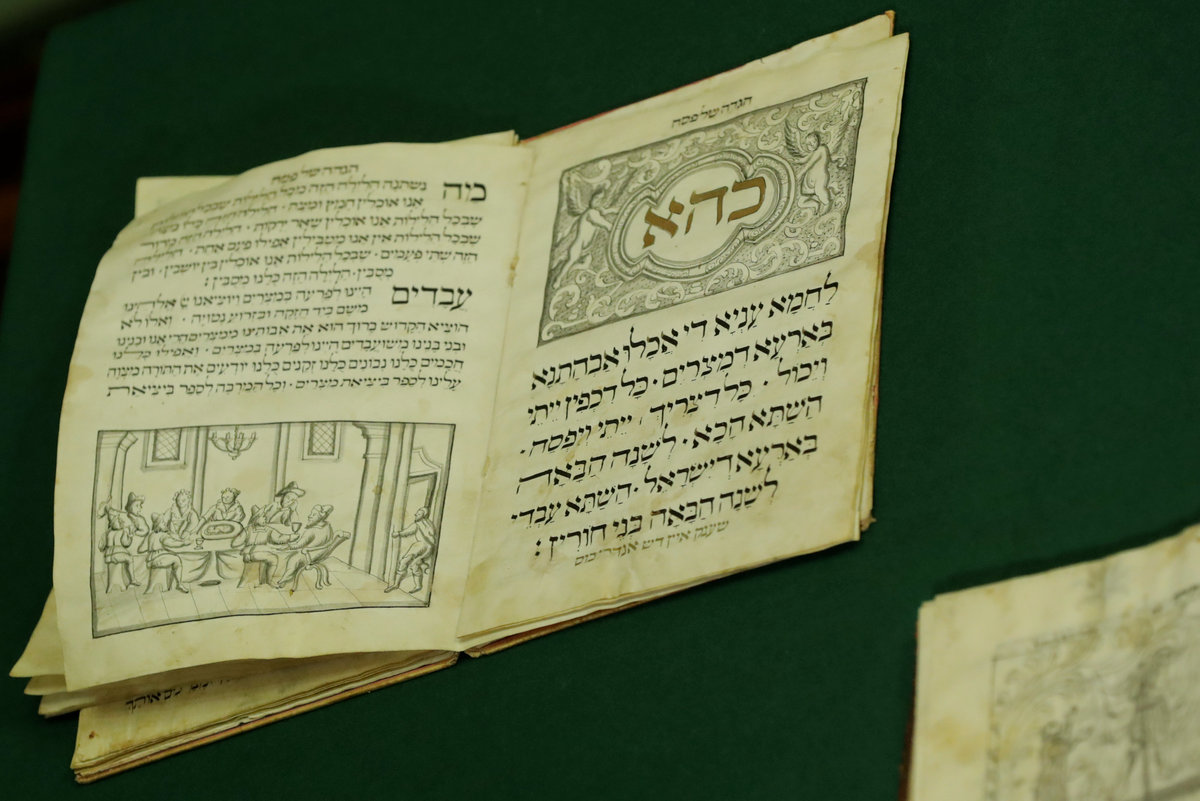 הגדה של פסח
כהא
לַחְמָא עַנְיָא דִי אֲכָלוּ אַבְהָתַנָא
בְּאַרְעָא דְמִצְרַיִם · כָּל דִכְפִין יֵיתֵי
וְיֵכוֹל · כָּל דִצְרִיךְ יֵיתֵי וְיִפְסַח ·
הָשַׁתָּא הָכָא · לְשָׁנָה הַבָּאָה
בְּאַרְעָא דְיִשְׂרָאֵל · הָשַׁתָּא עַבְדֵי
לְשָׁנָה הַבָּאָה בְּנֵי חוֹרִין :
שענק איין דש אנדרי כוס
הגדה של פסח
מה נשתנה הלילה הזה מכל הלילות שבכל הלילות
אנו אוכלין חמץ ומצה · הלילה הזה כלו מצה
שבכל הלילות אנו אוכלין שאר ירקות · הלילה הזה מרור
שבכל הלילות אין אנו מטבילין אפילו פעם אחת · הלילה
הזה שתי פעמים · שבכל הלילות אנו אוכלין בין יושבין · ובין
מסבין · הלילה הזה כלנו מסבין :
עבדים היינו לפרעה במצרים ויוציאנו
משם ביד חזקה ובזרוע נטויה · ואלו לא
הוציא הקדוש ברוך הוא את אבותינו ממצרים הרי אנו ובנינו
ובני בנינו משועבדים היינו לפרעה במצרים · ואפילו כלנו
חכמים כלנו נבונים כלנו זקנים כלנו יודעים את התורה מצוה
עלינו לספר ביציאת מצרים · וכל המרבה לספר ביציאת